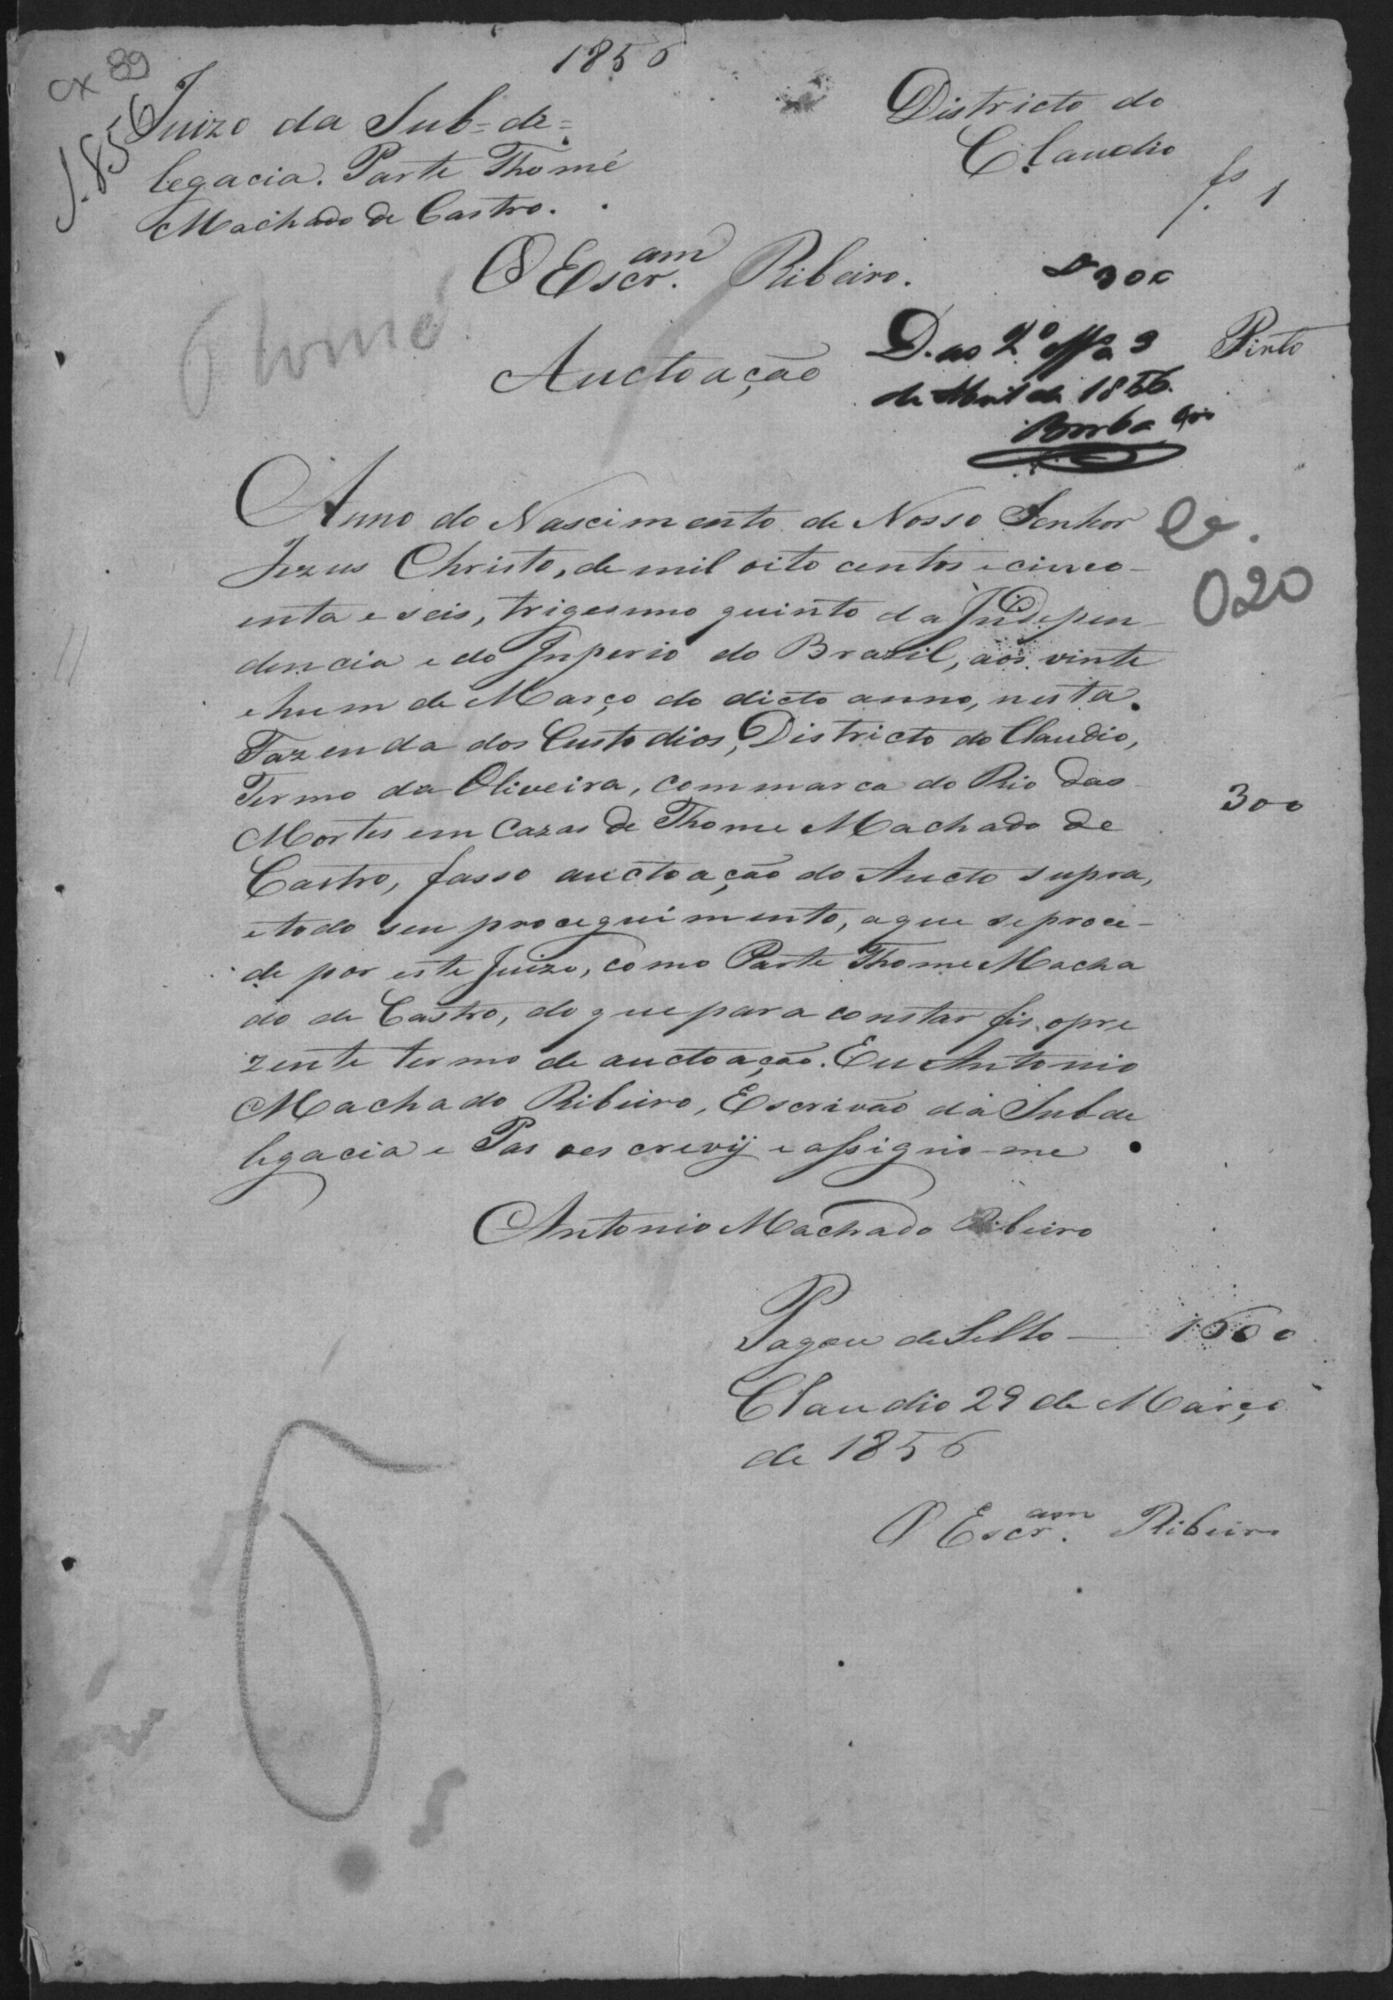 1856
cx 89
1856
Juizo da Sub=de=
legacia. Parte Thomé
Machado de Castro.
Districto do
Claudio
fs 1
O Escr.am Ribeiro.
300
Thomé
Auctoação
D. ao 2º offº a 3
de Abril de 1856.
Borba
Pinto
Anno do Nascimento de Nosso Senhor
Jezus Christo, de mil oito centos e cinco-
enta e seis, trigesimo quinto da Indepen-
dencia e do Inperio do Brazil, aos vinte
e hum de Março do dicto anno, nesta
Fazenda dos Custodios, Districto do Claudio,
Termo da Oliveira, commarca do Rio das
Mortes em Cazas de Thome Machado de
Castro, fasso auctoação do Aucto supra,
e todo seu proceguimento, a que se proce-
de por este Juizo, como Parte Thome Macha
do de Castro, do que para constar fis o pre
zente termo de auctoação. Eu Antonio
Machado Ribeiro, Escrivão da Subde
legacia e Pas o escrevij e assigno-me
020
300
Antonio Machado Ribeiro
Pagou de Sello — 1600
Claudio 29 de Março
de 1856
O Escr.am Ribeiro